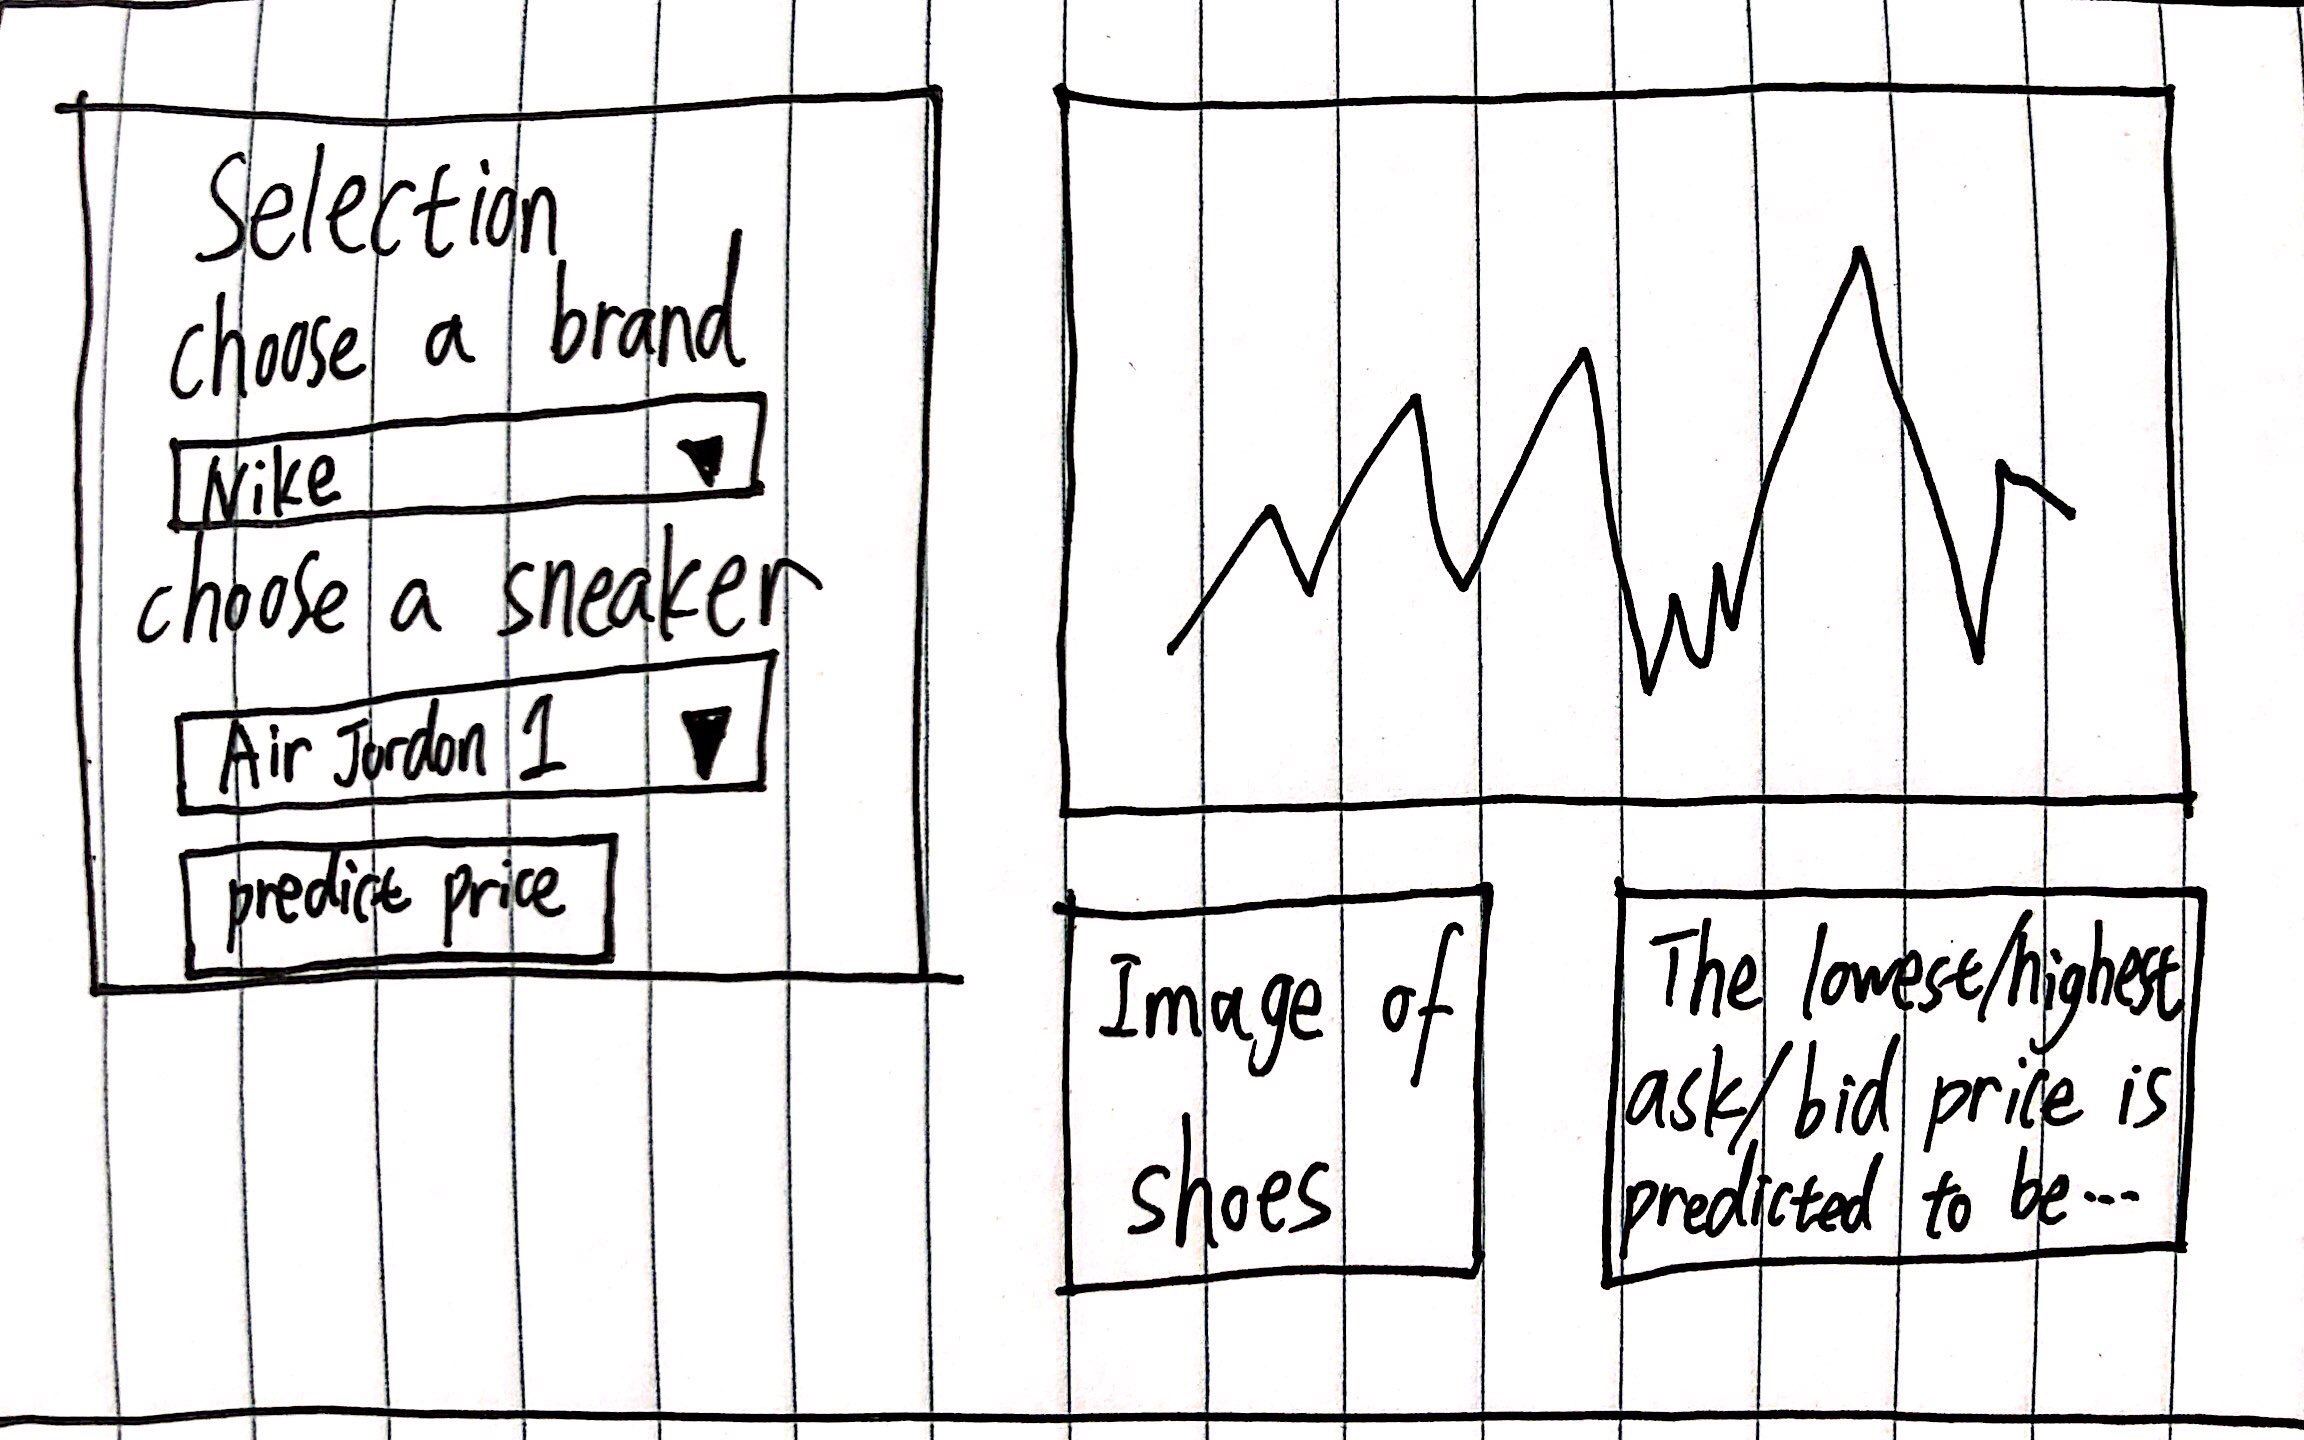 Selection
choose a brand
Nike
choose a sneaker
Air Jordon 1
predict price
Image of
shoes
The lowest/highest
ask/bid price is
predicted to be...